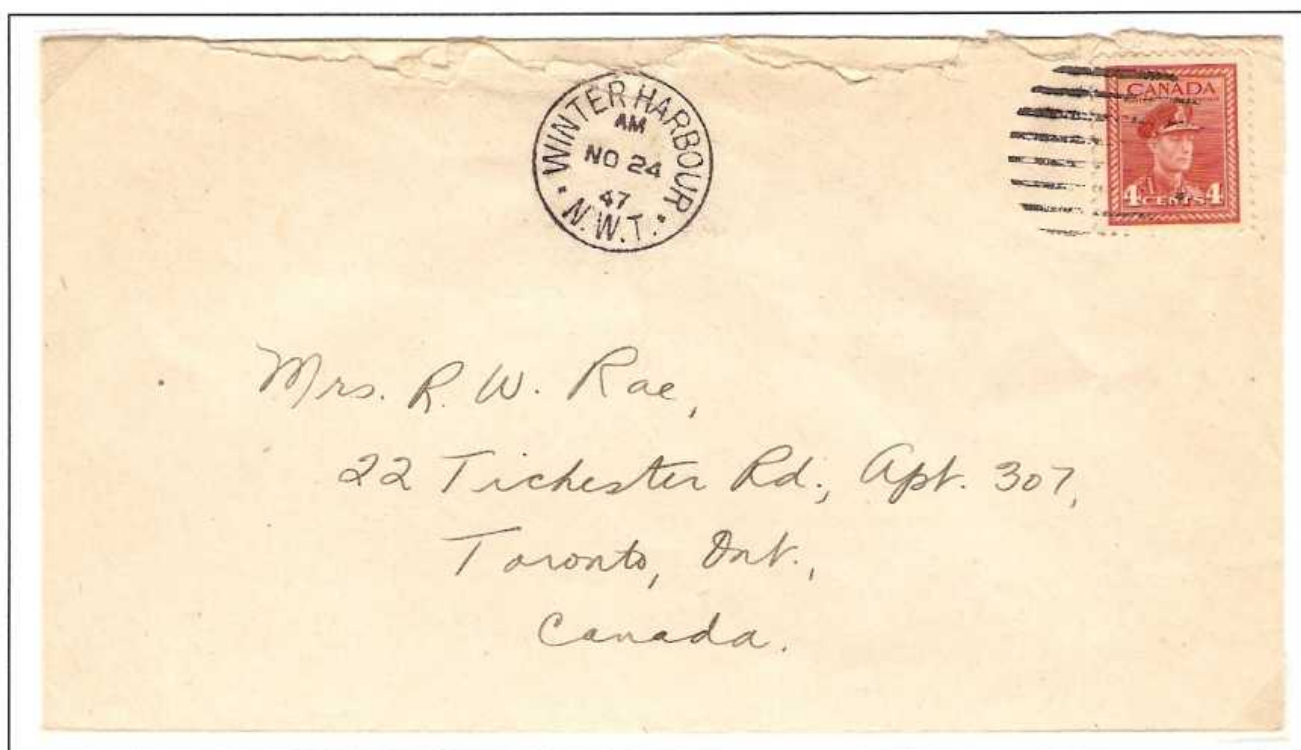 WINTER HARBOUR
AM
NO 24
47
N.W.T.
CANADA
4 CENTS 4
Mrs. R. W. Rae,
22 Tichester Rd., Apt. 307,
Toronto, Ont.,
Canada.